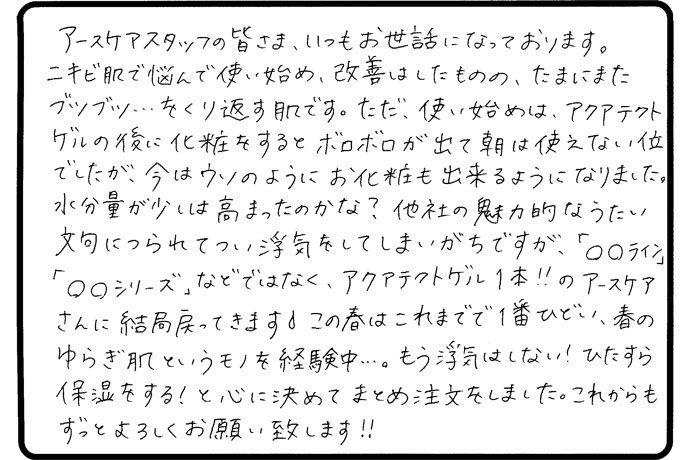 アースケアスタッフの皆さま、いつもお世話になっております。
ニキビ肌で悩んで使い始め、改善はしたものの、たまにまた
ブツブツ…をくり返す肌です。ただ、使い始めは、アクアテクト
ゲルの後に化粧をするとボロボロが出て朝は使えない位
でしたが、今はウソのようにお化粧も出来るようになりました。
水分量が少しは高まったのかな？他社の魅力的なうたい
文句につられてつい浮気をしてしまいがちですが、「〇〇ライン」
「〇〇シリーズ」などではなく、アクアテクトゲル1本!!のアースケア
さんに結局戻ってきます♪この春はこれまでで1番ひどい、春の
ゆらぎ肌というモノを経験中…。もう浮気はしない！ひたすら
保湿をする！と心に決めてまとめ注文をしました。これからも
ずっとよろしくお願い致します!!